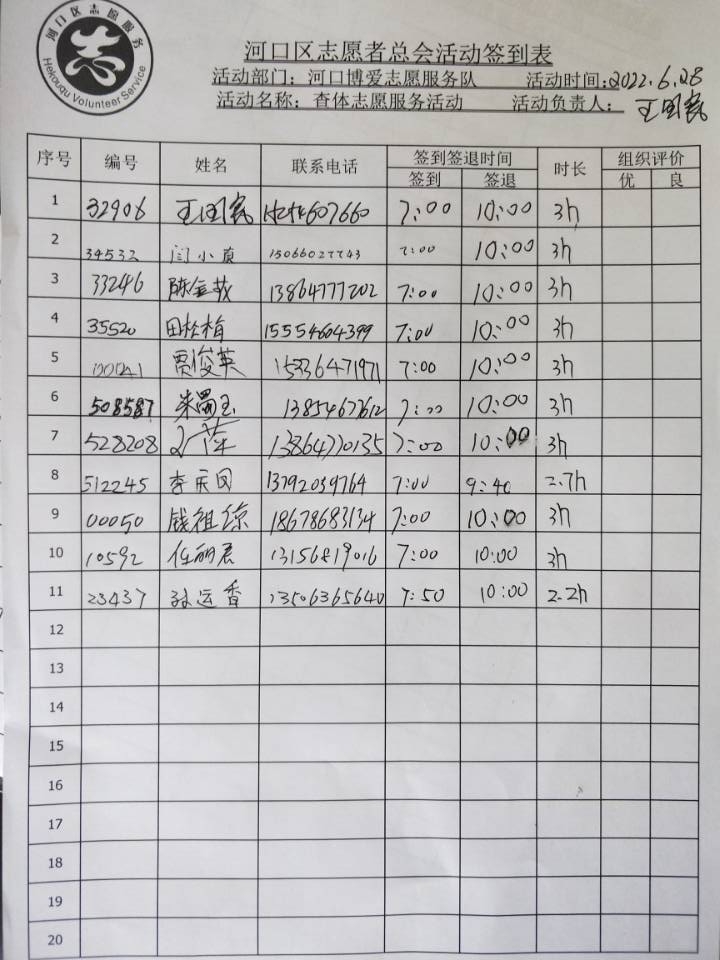 河口区志愿服务
志
Hekouqu Volunteer Service
河口区志愿者总会活动签到表
活动部门：河口博爱志愿服务队 活动时间：2022.6.28
活动名称：查体志愿服务活动 活动负责人：王国富
序号 编号 姓名 联系电话 签到签退时间 时长 组织评价
签到 签退 优 良
1 32906 王国富 607660 7:00 10:00 3h
2 34532 闫小贞 15066027743 7:00 10:00 3h
3 33246 陈金莪 13864777202 7:00 10:00 3h
4 35520 田松梅 15554604399 7:00 10:00 3h
5 00041 贾俊英 15336471971 7:00 10:00 3h
6 508587 朱蜀玉 13854677612 7:00 10:00 3h
7 528208 萍 13864770135 7:00 10:00 3h
8 512245 李庆凤 13792039764 7:00 9:40 2.7h
9 00050 钱祖琼 18678683134 7:00 10:00 3h
10 10592 任丽君 13156819016 7:00 10:00 3h
11 23437 孙运香 13506365640 7:50 10:00 2.2h
12
13
14
15
16
17
18
19
20